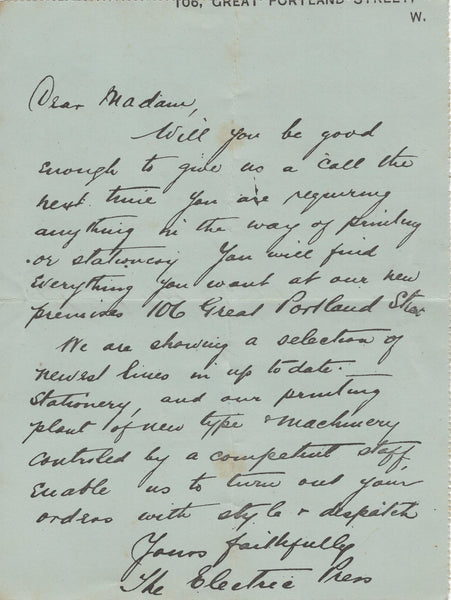 106, GREAT PORTLAND STREET,
W.
Dear Madam,
Will you be good
enough to give us a call the
next time you are requiring
anything in the way of printing
or stationery You will find
everything you want at our new
premises 106 Great Portland Stree
We are showing a selection of
newest lines in up to date
Stationery, and our printing
plant of new type & machinery
controled by a competent staff
enable us to turn out your
orders with style & dispatch
Yours faithfully
The Electric Press